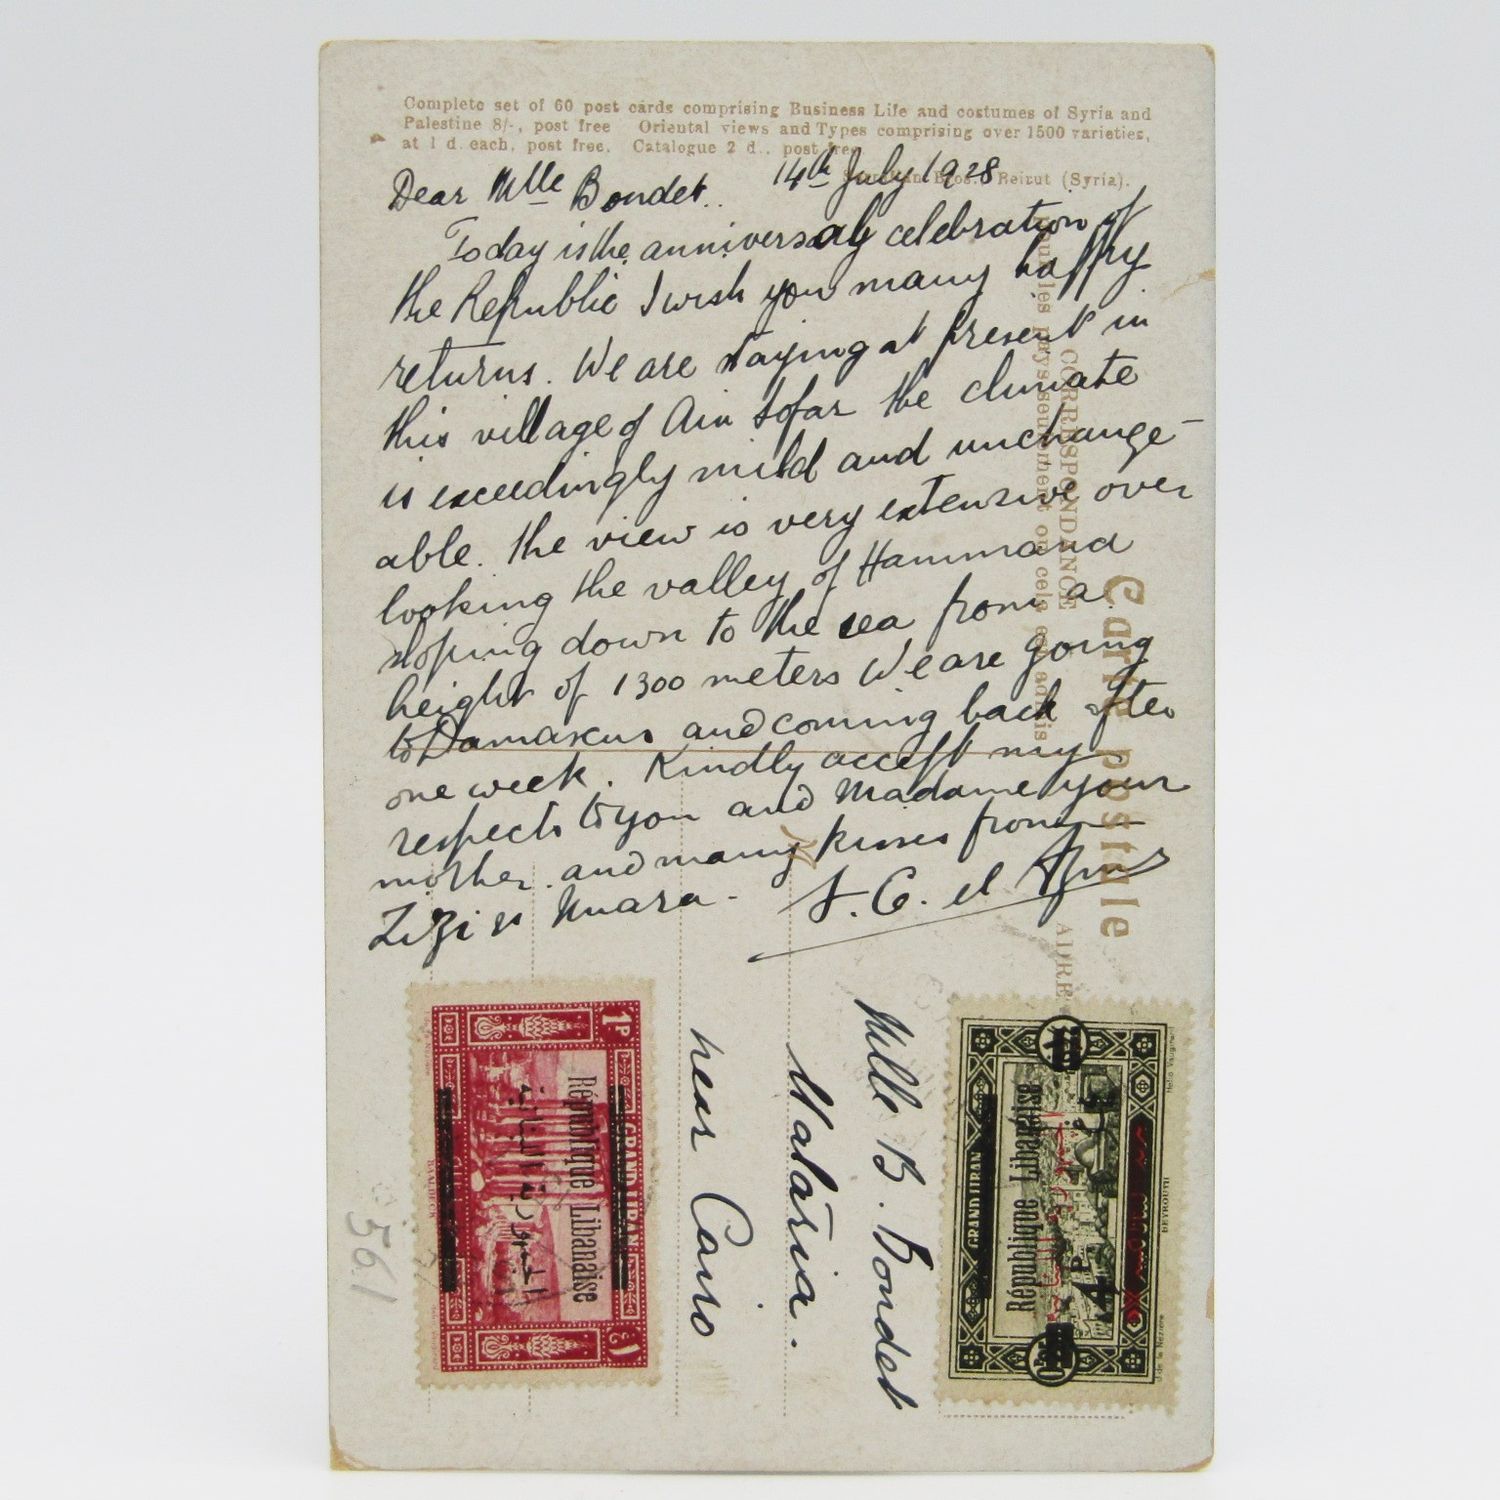 Complete set of 60 post cards comprising Business Life and costumes of Syria and
Palestine 8/-, post free Oriental views and Types comprising over 1500 varieties,
at 1 d. each, post free. Catalogue 2 d., post free
Bros. Beirut (Syria).
Dear Mlle Bondet. 14th July 1928
Today is the anniversay celebration of
the Republic I wish you many happy
returns. We are staying at present in
this village of Ain Sofar the climate
is exceedingly mild and unchange-
able. the view is very extensive over
looking the valley of Hammana
sloping down to the sea from a
height of 1300 meters We are going
to Damascus and coming back after
one week. Kindly accept my
respects to you and Madame your
mother. and many kisses from
Zizi et Nuara. J. C. el
Carte postale
CORRESPONDANCE
Mlle B. Bondet
Mataria.
near Cairo
1P
GRAND LIBAN
République Libanaise
الجمهورية اللبنانية
BAALBECK
GRAND LIBAN
République Libanaise
4P
BEYROUTH
Hélio Vaugirard
561